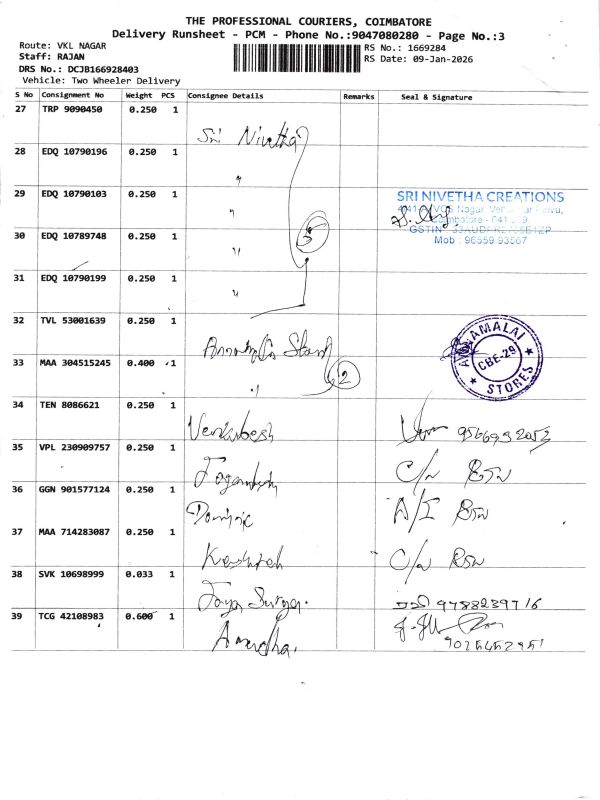 THE PROFESSIONAL COURIERS, COIMBATORE
Delivery Runsheet - PCM - Phone No.:9047080280 - Page No.:3
Route: VKL NAGAR
Staff: RAJAN
DRS No.: DCJB166928403
Vehicle: Two Wheeler Delivery
RS No.: 1669284
RS Date: 09-Jan-2026
S No Consignment No Weight PCS Consignee Details Remarks Seal & Signature
27 TRP 9090450 0.250 1 Sri Nivetha
28 EDQ 10790196 0.250 1 "
29 EDQ 10790103 0.250 1 "
SRI NIVETHA CREATIONS
Mob : 96559 93567
30 EDQ 10789748 0.250 1 " 5
31 EDQ 10790199 0.250 1 "
32 TVL 53001639 0.250 1
ANNAMALAI STORES
CBE-29
33 MAA 304515245 0.400 1 " 2
34 TEN 8086621 0.250 1 Venkatesh
35 VPL 230909757 0.250 1 C/N
36 GGN 901577124 0.250 1 Dominic A/I
37 MAA 714283087 0.250 1 C/N
38 SVK 10698999 0.033 1 Jaya Surya. 9788239716
39 TCG 42108983 0.600 1 Anugtha. 9025452951